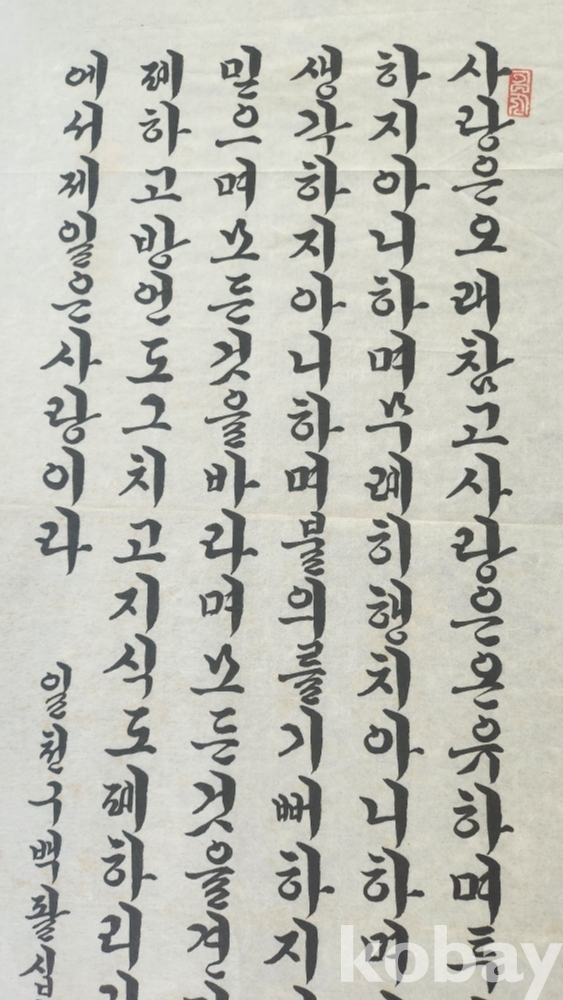 사랑은오래참고사랑은온유하며투
하지아니하며무례히행치아니하며
생각하지아니하며불의를기뻐하지
믿으며모든것을바라며모든것을견
폐하고방언도그치고지식도폐하리
에서제일은사랑이라
일천구백팔십
kobay